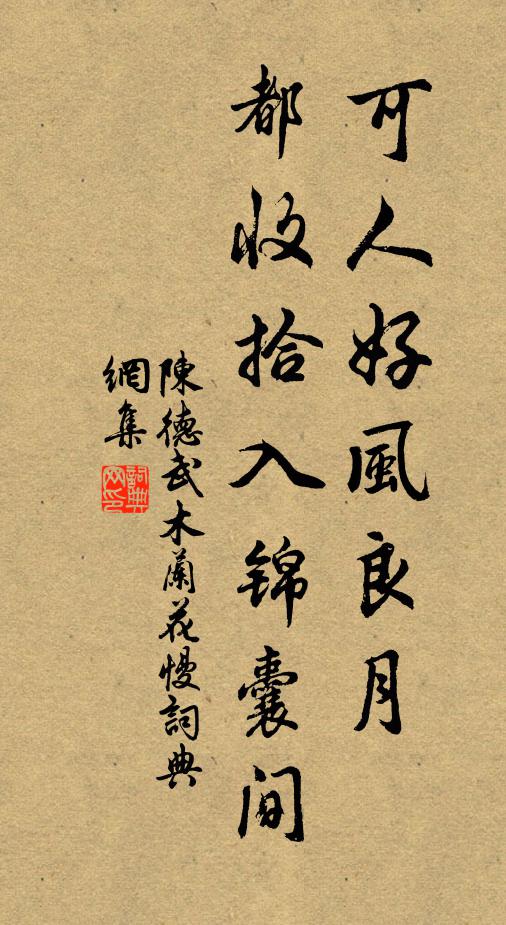 可人好風良月
都收拾入锦囊间
陳德武木蘭花慢詞典
網集
詞典网印